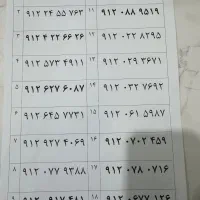 ۲ ۹۱۲ ۲۴ ۵۵ ۷۶۳ ۱۱ ۹۱۲ ۰۸۸ ۹۵۱۹
۳ ۹۱۲ ۴ ۲۲ ۶۶ ۲۶ ۱۲ ۹۱۲ ۰۲۲ ۸۲۹۵
۴ ۹۱۲ ۵۷۳ ۴۹۱۱ ۱۳ ۹۱۲ ۰۲۹ ۲۶۷۱
۵ ۹۱۲ ۶۲۷ ۶۰۸۷ ۱۴ ۹۱۲ ۰۳۲ ۷۶۹۲
۶ ۹۱۲ ۶۴۵ ۷۷۳۱ ۱۵ ۹۱۲ ۰۶۱ ۵۹۸۷
۷ ۹۱۲ ۹۲۷ ۴۰۶۹ ۱۶ ۹۱۲ ۰ ۷۰۲ ۴۵۹
۸ ۹۱۲ ۰۷۷ ۹۳۸۸ ۱۷ ۹۱۲ ۰ ۷۸ ۰ ۷۱۶
۱۸ ۹۱۲ ۰۶۷۷ ۱۲۶